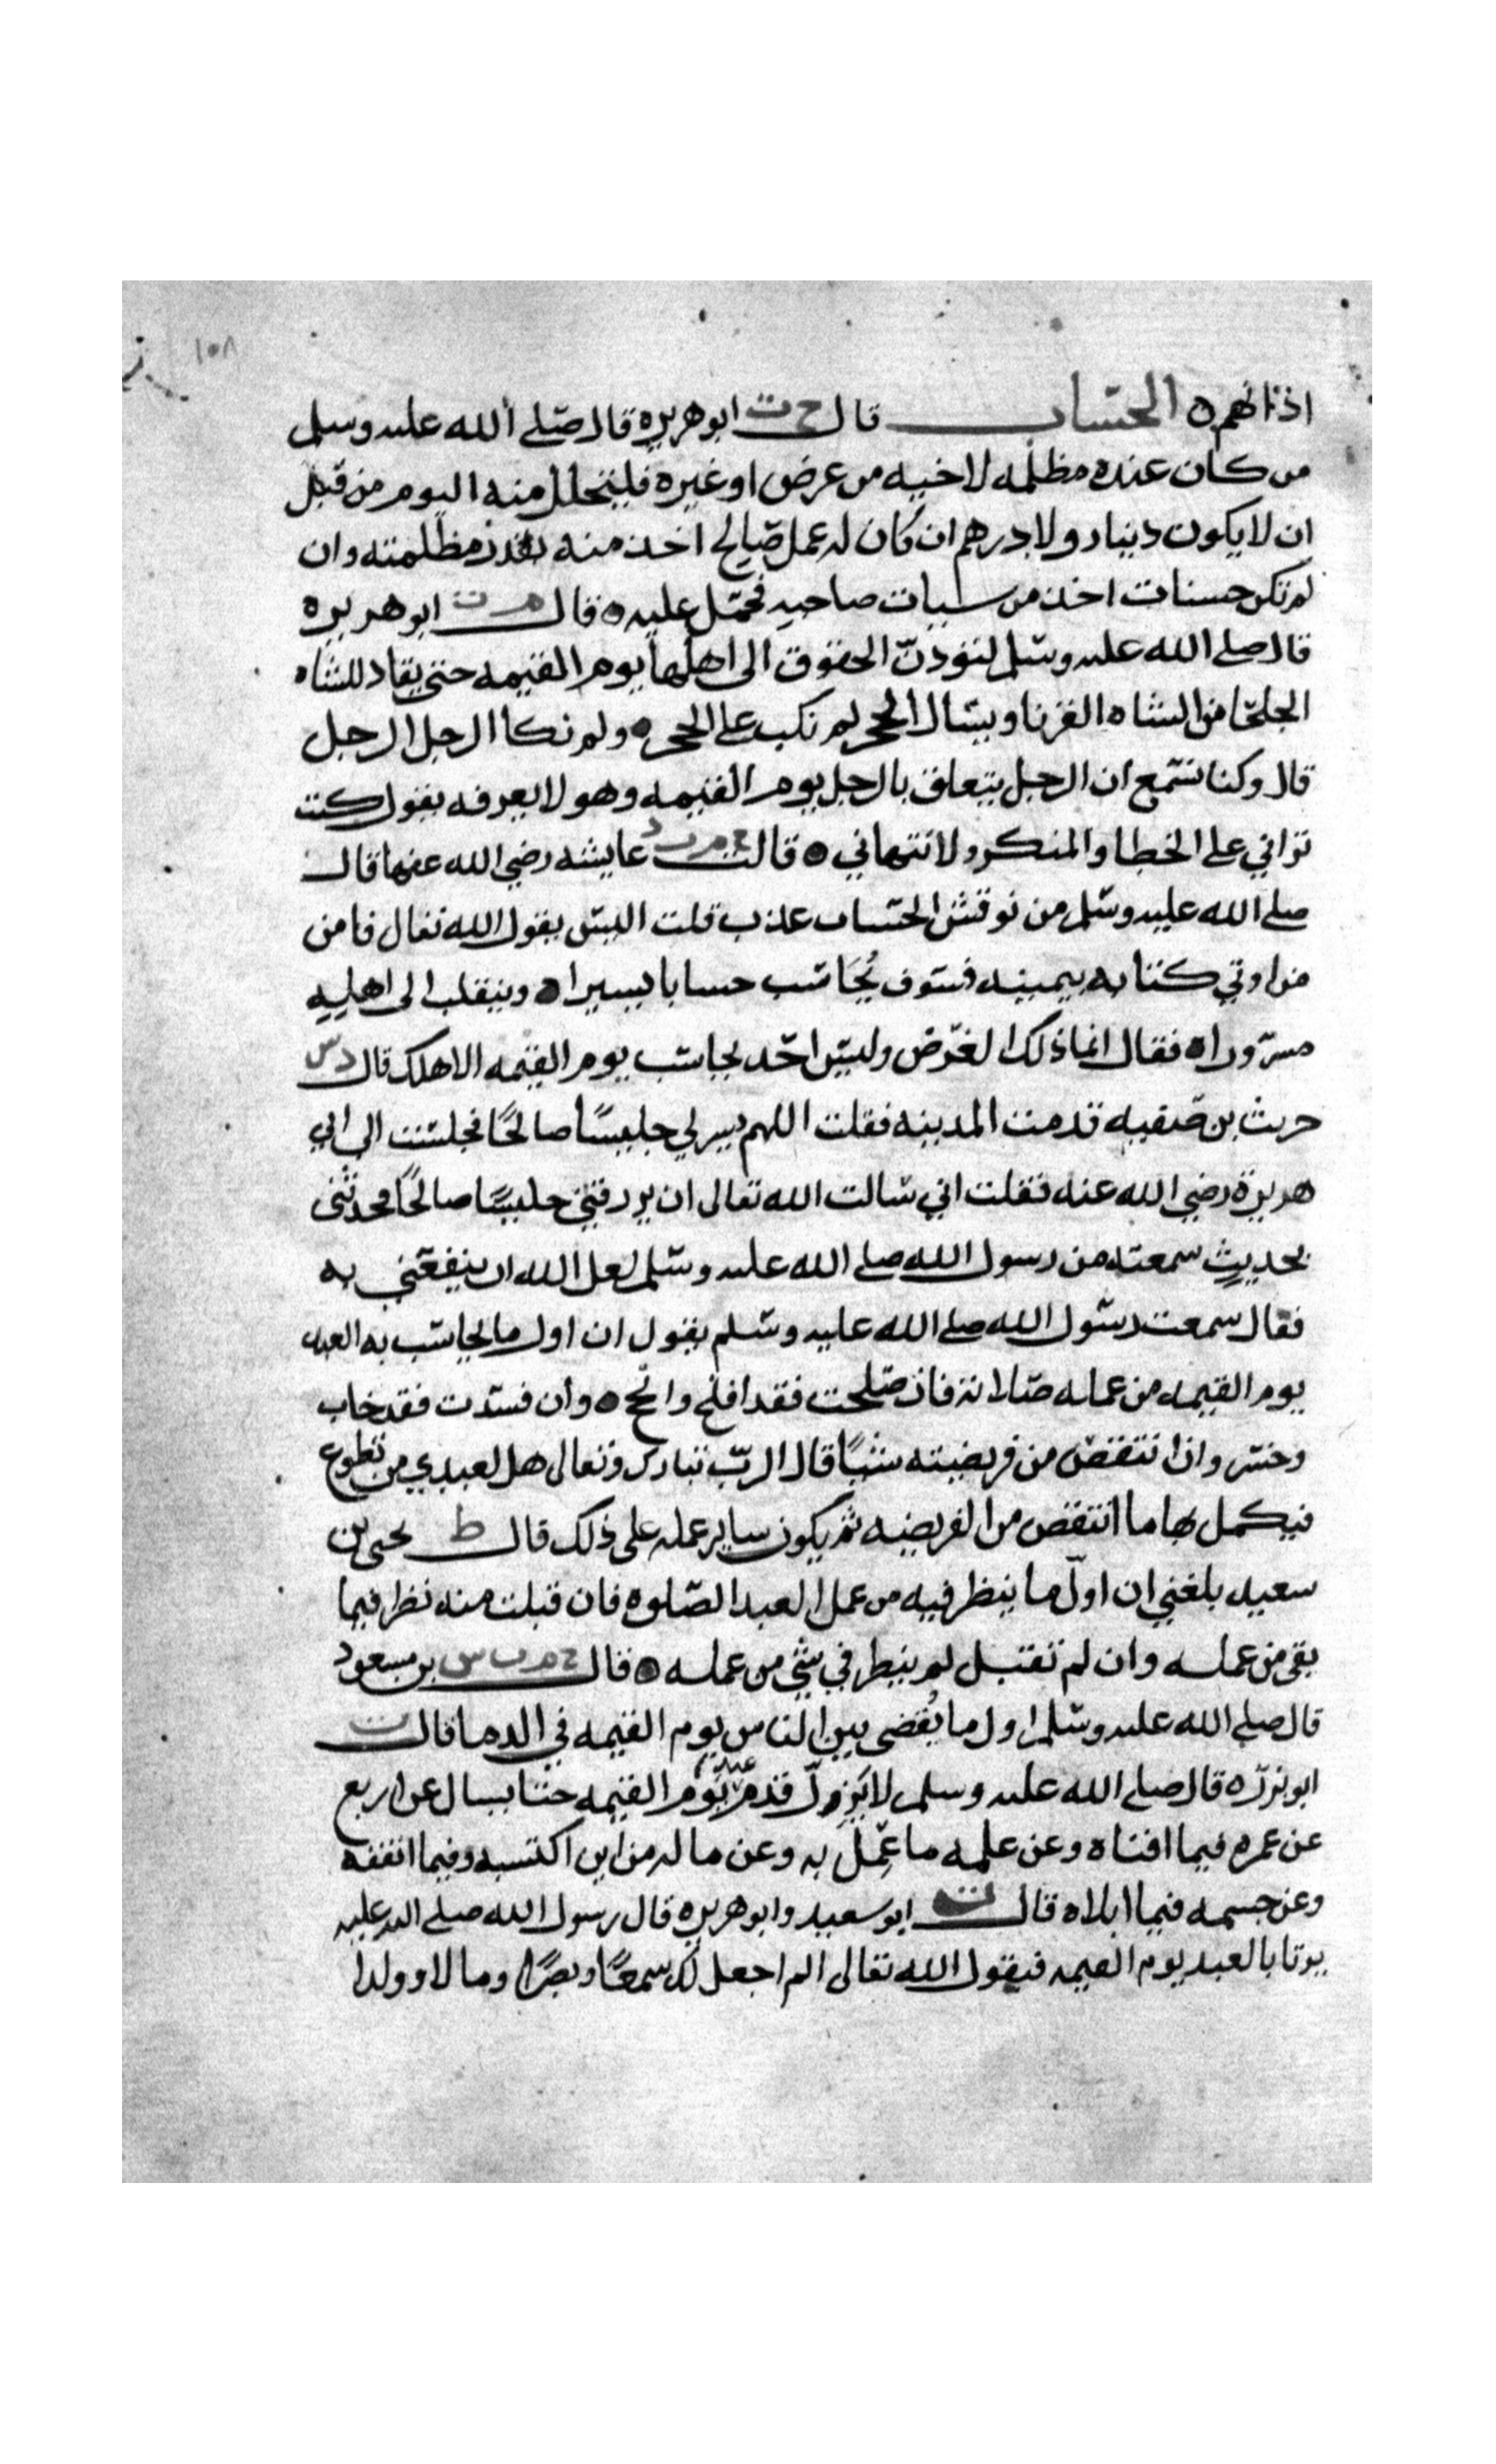 ١٥٨
اذانهم ه الحساب قال خ ت ابو هريره قال صلى الله عليه وسلم
من كان عنده مظلمه لاخيه من عرض او غيره فليتحلل منه اليوم من قبل
ان لا يكون دينار ولا درهم ان كان له عمل صالح اخذ منه بقدر مظلمته وان
لم تكن حسنات اخذ من سيات صاحبه فحمل عليه ه قال م ت ابو هريره
قال صلى الله عليه وسلم لتودن الحقوق الى اهلها يوم القيمه حتى يقاد للشاه
الجلحا من الشاه القرنا ويسال الحجر لم نكب على الحجر ه ولم نكا الرجل الرجل
قال وكنا نسمع ان الرجل يتعلق بالرجل يوم القيمه وهو لا يعرفه يقول كنت
تراني على الخطا والمنكر ولا تنهاني ه قالت خ م ت د عايشه رضي الله عنها قال
صلى الله عليه وسلم من نوقش الحساب عذب قلت اليس يقول الله تعالى فامن
من اوتي كتابه بيمينه فسوف يحاسب حسابا يسيرا ه وينقلب الى اهليه
مسرورا ه فقال انما ذلك العرض وليس احد يحاسب يوم القيمه الا هلك قال د س
حريث بن قبيصه قدمت المدينه فقلت اللهم يسر لي جليسًا صالحًا فجلست الى ابي
هريرة رضي الله عنه فقلت اني سالت الله تعالى ان يرزقني جليسًا صالحًا فحدثني
بحديثٍ سمعته من رسول الله صلى الله عليه وسلم لعل الله ان ينفعني به
فقال سمعت رسول الله صلى الله عليه وسلم يقول ان اول ما يحاسب به العبد
يوم القيمه من عمله صلاته فان صلحت فقد افلح وانجح ه وان فسدت فقد خاب
وخسر وان انتقص من فريضته شيًا قال الرب تبارك وتعالى هل لعبدي من تطوع
فيكمل بها ما انتقص من الفريضه ثم يكون ساير عمله على ذلك قال ط يحيى بن
سعيد بلغني ان اول ما ينظر فيه من عمل العبد الصلوه فان قبلت منه نظر فيما
بقى من عمله وان لم تقبل لم ينظر في شي من عمله ه قال خ م ت س بن مسعود
قال صلى الله عليه وسلم اول ما يُقضى بين الناس يوم القيمه في الدما قال ت
ابو برزه قال صلى الله عليه وسلم لا يزول قدم عبد يوم القيمه حتا يسال عن اربع
عن عمره فيما افناه وعن علمه ما عمل به وعن ماله من اين اكتسبه وفيما انفقه
وعن جسمه فيما ابلاه قال ت ابو سعيد وابو هريره قال رسول الله صلى الله عليه
يوتا بالعبد يوم القيمه فيقول الله تعالى الم اجعل لك سمعًا وبصرًا ومالا وولدا